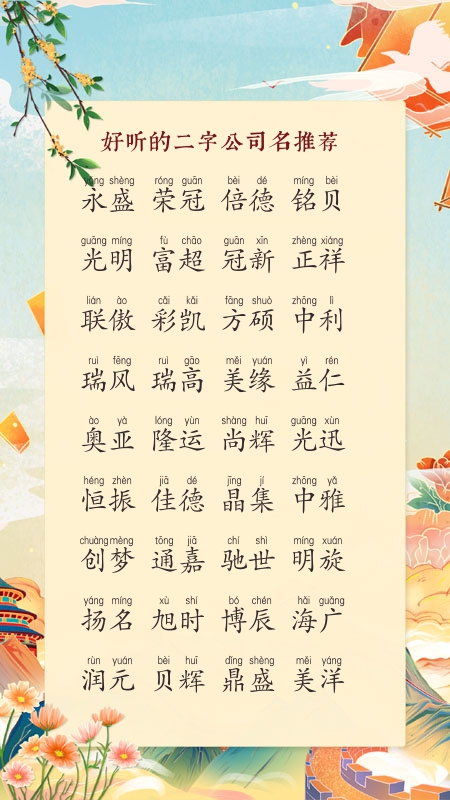 好听的二字公司名推荐
yǒng shèng róng guān bèi dé míng bèi
永盛 荣冠 倍德 铭贝
guāng míng fù chāo guān xīn zhèng xiáng
光明 富超 冠新 正祥
lián ào cǎi kǎi fāng shuò zhōng lì
联傲 彩凯 方硕 中利
ruì fēng ruì gāo měi yuán yì rén
瑞风 瑞高 美缘 益仁
ào yà lóng yùn shàng huī guāng xùn
奥亚 隆运 尚辉 光迅
héng zhèn jiā dé jīng jí zhōng yǎ
恒振 佳德 晶集 中雅
chuàng mèng tōng jiā chí shì míng xuán
创梦 通嘉 驰世 明旋
yáng míng xù shí bó chén hǎi guǎng
扬名 旭时 博辰 海广
rùn yuán bèi huī dǐng shèng měi yáng
润元 贝辉 鼎盛 美洋